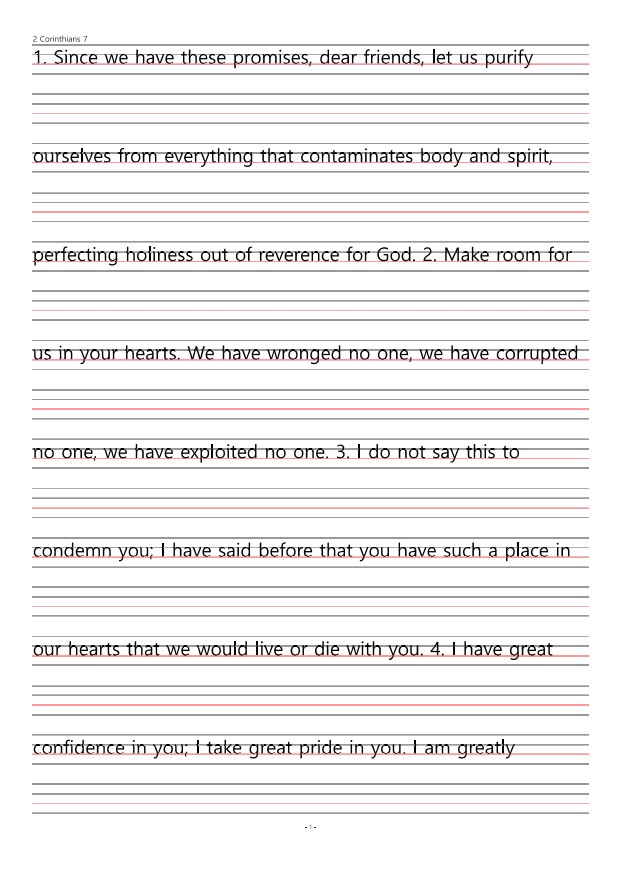 2 Corinthians 7
1. Since we have these promises, dear friends, let us purify
ourselves from everything that contaminates body and spirit,
perfecting holiness out of reverence for God. 2. Make room for
us in your hearts. We have wronged no one, we have corrupted
no one, we have exploited no one. 3. I do not say this to
condemn you; I have said before that you have such a place in
our hearts that we would live or die with you. 4. I have great
confidence in you; I take great pride in you. I am greatly
- 1 -